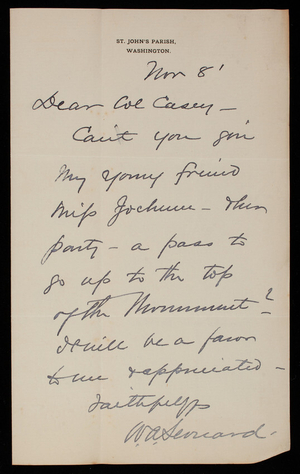 ST. JOHN'S PARISH,
WASHINGTON.
Nov 8'
Dear Col Casey —
Can't you give
my young friend
Miss — their
party — a pass to
go up to the top
of the Monument?
It will be a favor
to me & appreciated —
Faithfully
W.A. Leonard.